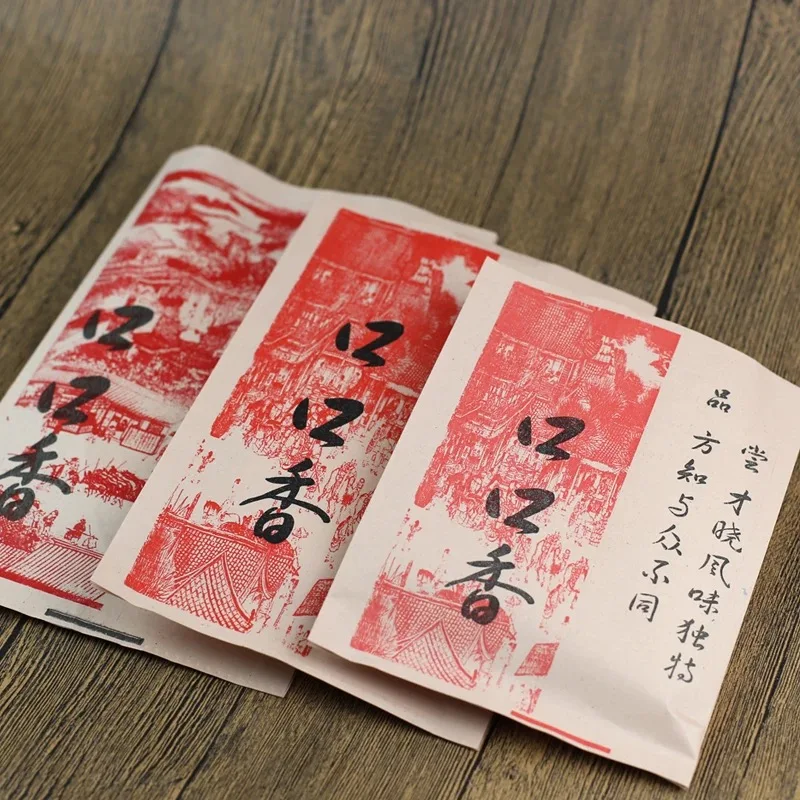 口口香
口口香
口口香
尝才晓风味独特
品方知与众不同